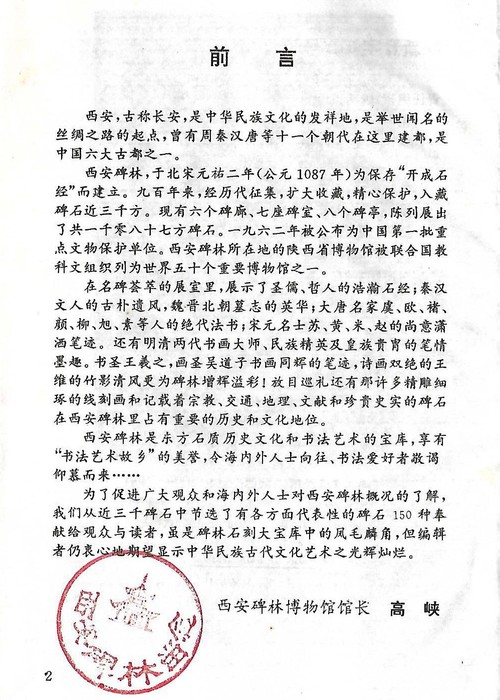 前言
西安,古称长安,是中华民族文化的发祥地,是举世闻名的
丝绸之路的起点,曾有周秦汉唐等十一个朝代在这里建都,是
中国六大古都之一。
西安碑林,于北宋元祐二年(公元1087年)为保存“开成石
经”而建立。九百年来,经历代征集,扩大收藏,精心保护,入藏
碑石近三千方。现有六个碑廊、七座碑室、八个碑亭,陈列展出
了共一千零八十七方碑石。一九六二年被公布为中国第一批重
点文物保护单位。西安碑林所在地的陕西省博物馆被联合国教
科文组织列为世界五十个重要博物馆之一。
在名碑荟萃的展室里,展示了圣儒、哲人的浩瀚石经;秦汉
文人的古朴遗风,魏晋北朝墓志的英华;大唐名家虞、欧、褚、
颜、柳、旭、素等人的绝代法书;宋元名士苏、黄、米、赵的尚意潇
洒笔迹。还有明清两代书画大师、民族精英及皇族贵胄的笔情
墨趣。书圣王羲之,画圣吴道子书画同辉的笔迹,诗画双绝的王
维的竹影清风更为碑林增辉溢彩!放目巡礼还有那许多精雕细
琢的线刻画和记载着宗教、交通、地理、文献和珍贵史实的碑石
在西安碑林里占有重要的历史和文化地位。
西安碑林是东方石质历史文化和书法艺术的宝库,享有
“书法艺术故乡”的美誉,令海内外人士向往、书法爱好者敬谒
仰慕而来……
为了促进广大观众和海内外人士对西安碑林概况的了解,
我们从近三千碑石中节选了有各方面代表性的碑石150种奉
献给观众与读者,虽是碑林石刻大宝库中的凤毛麟角,但编辑
者仍衷心地期望显示中华民族古代文化艺术之光辉灿烂。
西安碑林博物馆馆长 高峡
2